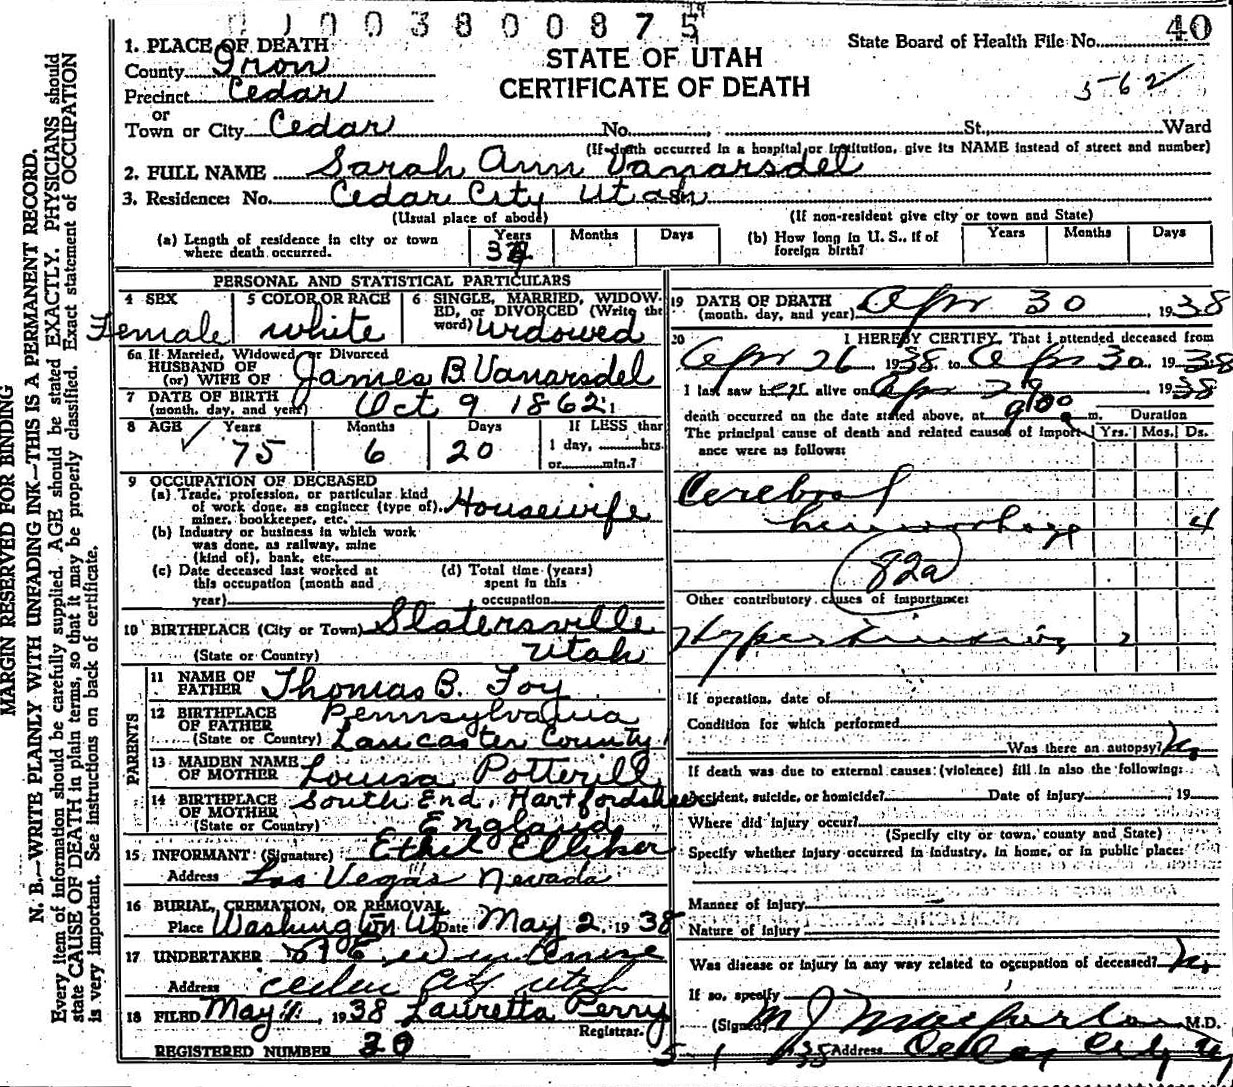 0 1 0 0 3 8 0 0 8 7 5
40
1. PLACE OF DEATH
County Iron
Precinct Cedar
or
Town or City Cedar No. St., Ward
STATE OF UTAH
CERTIFICATE OF DEATH
State Board of Health File No.
562
(If death occurred in a hospital or institution, give its NAME instead of street and number)
2. FULL NAME Sarah Ann Vanarsdel
3. Residence: No. Cedar City Utah
(Usual place of abode)
(If non-resident give city or town and State)
(a) Length of residence in city or town
where death occurred.
Years Months Days
(b) How long in U. S., if of
foreign birth?
Years Months Days
PERSONAL AND STATISTICAL PARTICULARS
4 SEX
Female
5 COLOR OR RACE
white
6 SINGLE, MARRIED, WIDOW-
ED, or DIVORCED (Write the
word) Widowed
6a If Married, Widowed or Divorced
HUSBAND OF
(or) WIFE OF James B. Vanarsdel
7 DATE OF BIRTH
(month, day, and year) Oct 9 1862
8 AGE Years Months Days If LESS than
75 6 20 1 day, hrs.
or min.?
9 OCCUPATION OF DECEASED
(a) Trade, profession, or particular kind
of work done, as engineer (type of), Housewife
miner, bookkeeper, etc.
(b) Industry or business in which work
was done, as railway, mine
(kind of), bank, etc.
(c) Date deceased last worked at
this occupation (month and
year)
(d) Total time (years)
spent in this
occupation
10 BIRTHPLACE (City or Town) Slatersville
(State or Country) Utah
PARENTS
11 NAME OF
FATHER Thomas B. Foy
12 BIRTHPLACE
OF FATHER Pennsylvania
(State or Country) Lancaster County
13 MAIDEN NAME
OF MOTHER Louisa Potterill
14 BIRTHPLACE South End, Hartfordsheer
OF MOTHER
(State or Country) England
15 INFORMANT (Signature) Ethel Elliker
Address Las Vegas Nevada
16 BURIAL, CREMATION, OR REMOVAL
Place Washington Ut Date May 2 1938
17 UNDERTAKER
Address Cedar City Utah
18 FILED May 1, 1938 Lauretta Perry
Registrar.
REGISTERED NUMBER 30
19 DATE OF DEATH
(month, day, and year) Apr 30, 1938
20 I HEREBY CERTIFY, That I attended deceased from
Apr 26, 1938 to Apr 30, 1938
I last saw her alive on Apr 29 1938
death occurred on the date stated above, at 9:00 m. Duration
The principal cause of death and related causes of import-
ance were as follows:
Yrs. Mos. Ds.
Cerebral
hemorrhage 4
82a
Other contributory causes of importance:
Hypertension 2
If operation, date of
Condition for which performed
Was there an autopsy? No
If death was due to external causes (violence) fill in also the following:
Accident, suicide, or homicide? Date of injury 19
Where did injury occur?
(Specify city or town, county and State)
Specify whether injury occurred in industry, in home, or in public place:
Manner of injury
Nature of injury
Was disease or injury in any way related to occupation of deceased? No
If so, specify
(Signed) M J Macfarlane M.D.
5-1 1938 Address Cedar City Ut
MARGIN RESERVED FOR BINDING
N. B.—WRITE PLAINLY WITH UNFADING INK—THIS IS A PERMANENT RECORD.
Every item of information should be carefully supplied. AGE should be stated EXACTLY. PHYSICIANS should
state CAUSE OF DEATH in plain terms, so that it may be properly classified. Exact statement of OCCUPATION
is very important. See instructions on back of certificate.